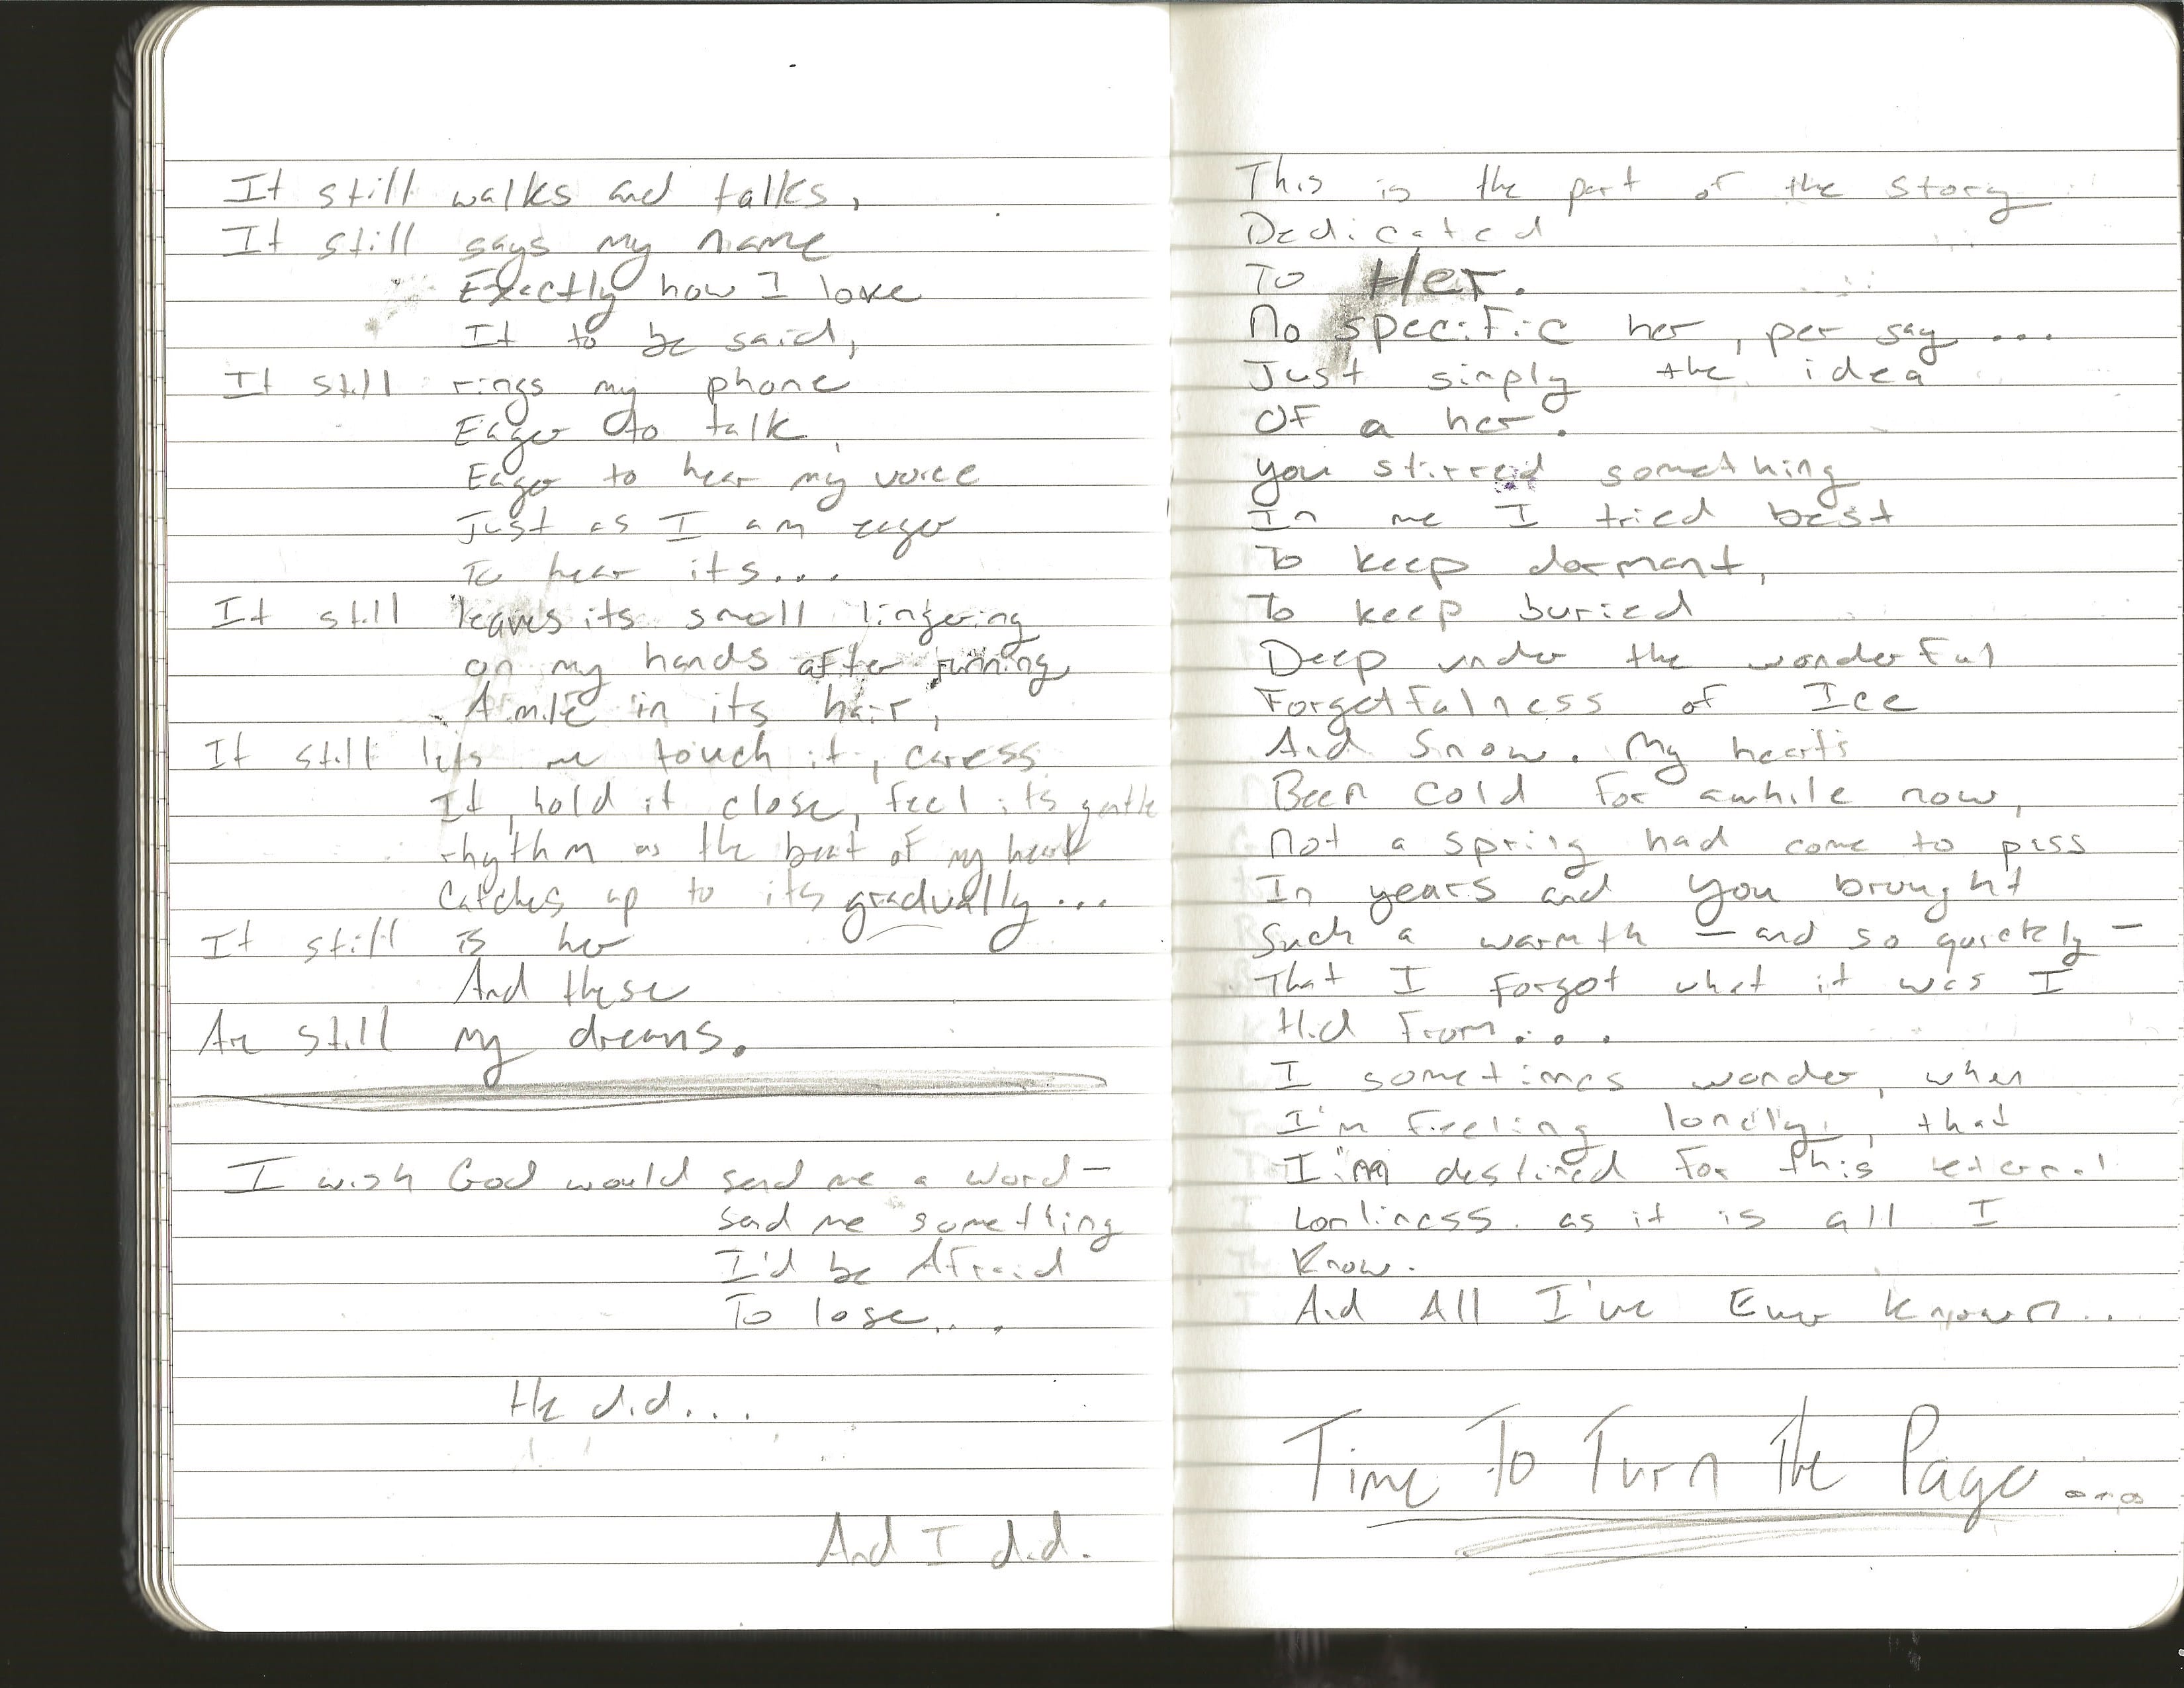 It still walks and talks,
It still says my name
Exactly how I love
It to be said,
It still rings my phone
Eager to talk,
Eager to hear my voice
Just as I am eager
To hear its...
It still leaves its smell lingering
on my hands after running
A mile in its hair,
It still lets me touch it, caress
It, hold it close, feel its gentle
rhythm as the beat of my heart
Catches up to its gradually...
It still is her
And these
Are still my dreams.
I wish God would send me a word—
send me something
I'd be Afraid
To lose...
He did...
And I did.
This is the part of the story
Dedicated
To Her.
No specific her, per say...
Just simply the idea
Of a her.
you stirred something
In me I tried best
To keep dormant,
To keep buried
Deep under the wonderful
Forgetfulness of Ice
And Snow. My heart's
Been cold for awhile now,
Not a spring had come to pass
In years and you brought
Such a warmth — and so quickly —
That I forgot what it was I
Hid From...
I sometimes wonder, when
I'm feeling lonely, that
I'm destined for this eternal
Lonliness. as it is all I
Know.
And All I've Ever Known...
Time To Turn The Page....